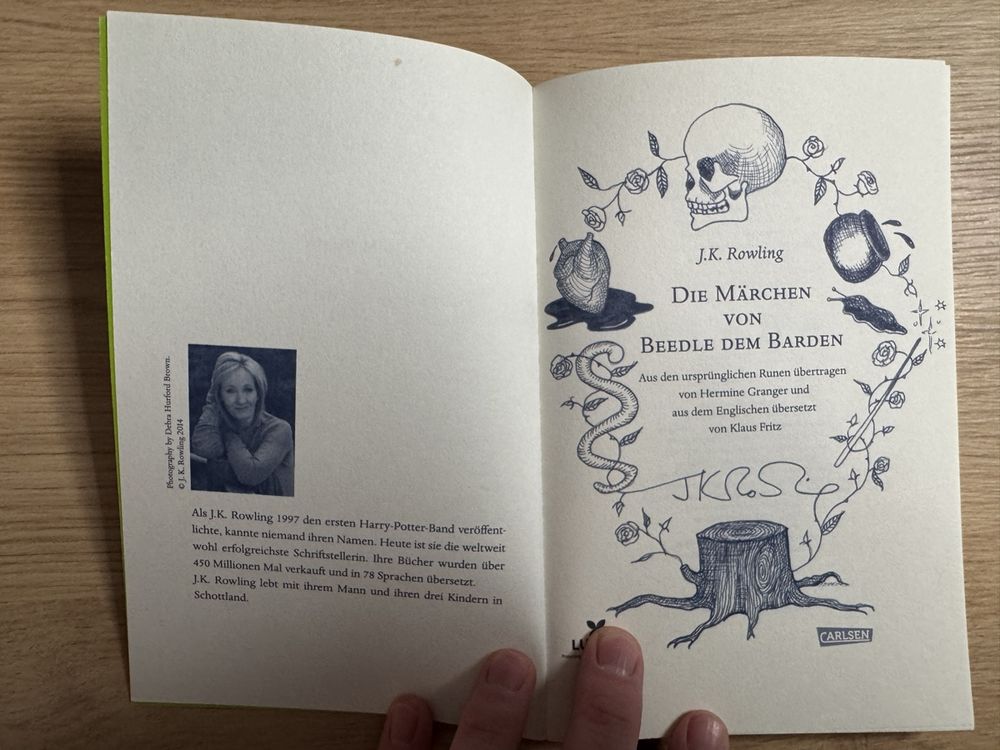 Photography by Debra Hurford Brown.
© J. K. Rowling 2014
Als J.K. Rowling 1997 den ersten Harry-Potter-Band veröffent-
lichte, kannte niemand ihren Namen. Heute ist sie die weltweit
wohl erfolgreichste Schriftstellerin. Ihre Bücher wurden über
450 Millionen Mal verkauft und in 78 Sprachen übersetzt.
J.K. Rowling lebt mit ihrem Mann und ihren drei Kindern in
Schottland.
J.K. Rowling
Die Märchen
von
Beedle dem Barden
Aus den ursprünglichen Runen übertragen
von Hermine Granger und
aus dem Englischen übersetzt
von Klaus Fritz
CARLSEN